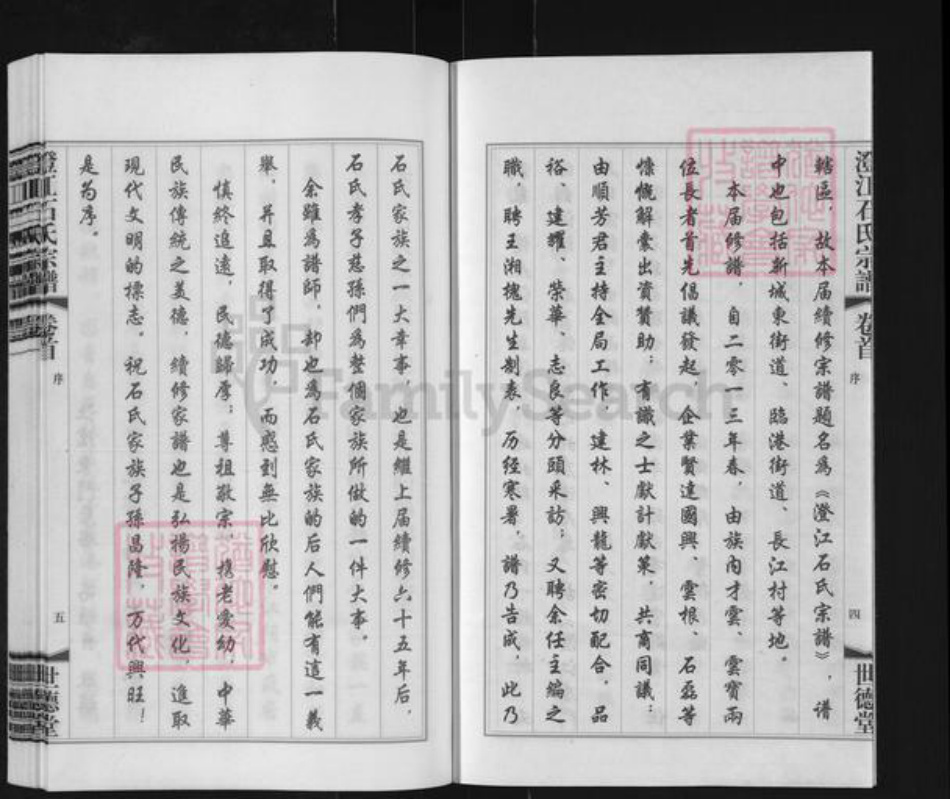 澄江石氏宗譜
卷首
序
四
世德堂
轄區，故本届續修宗譜題名為《澄江石氏宗譜》，譜
中也包括新城東街道、臨港街道、長江村等地。
本届修譜，自二零一三年春，由族内才雲、雲寶兩
位長者首先倡議發起，企業賢達國興、雲根、石磊等
慷慨解囊出資贊助；有識之士獻計獻策，共商同議；
由順芳君主持全局工作，建林、興龍等密切配合，品
裕、建耀、榮華、志良等分頭采訪；又聘余任主編之
職，聘王湘槐先生制表，历经寒暑，譜乃告成，此乃
石氏家族之一大幸事，也是繼上届續修六十五年后，
石氏孝子慈孫們為整個家族所做的一件大事。
余雖為譜師，却也為石氏家族的后人們能有這一義
舉，并且取得了成功，而感到無比欣慰。
慎終追遠，民德歸厚；尊祖敬宗，携老愛幼，中華
民族傳統之美德，續修家譜也是弘揚民族文化，進取
現代文明的標志。祝石氏家族子孫昌隆，万代興旺！
是為序。
澄江石氏宗譜
卷首
序
五
世德堂
FamilySearch